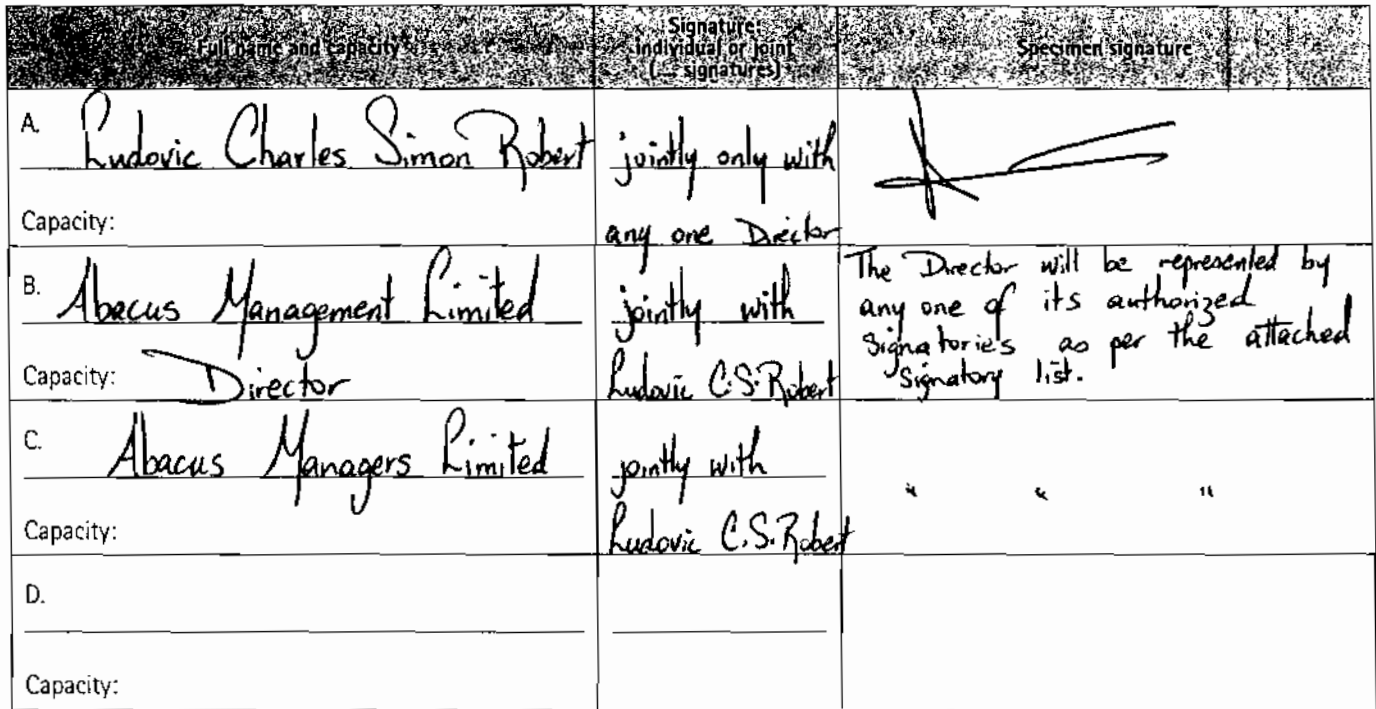 Full name and capacity
Signature:
individual or joint
(... signatures)
Specimen signature
A. Ludovic Charles Simon Robert
Capacity:
jointly only with
any one Director
B. Abacus Management Limited
Capacity: Director
jointly with
Ludovic C.S. Robert
The Director will be represented by
any one of its authorized
Signatories as per the attached
Signatory list.
C. Abacus Managers Limited
Capacity:
jointly with
Ludovic C.S. Robert
" " "
D.
Capacity: